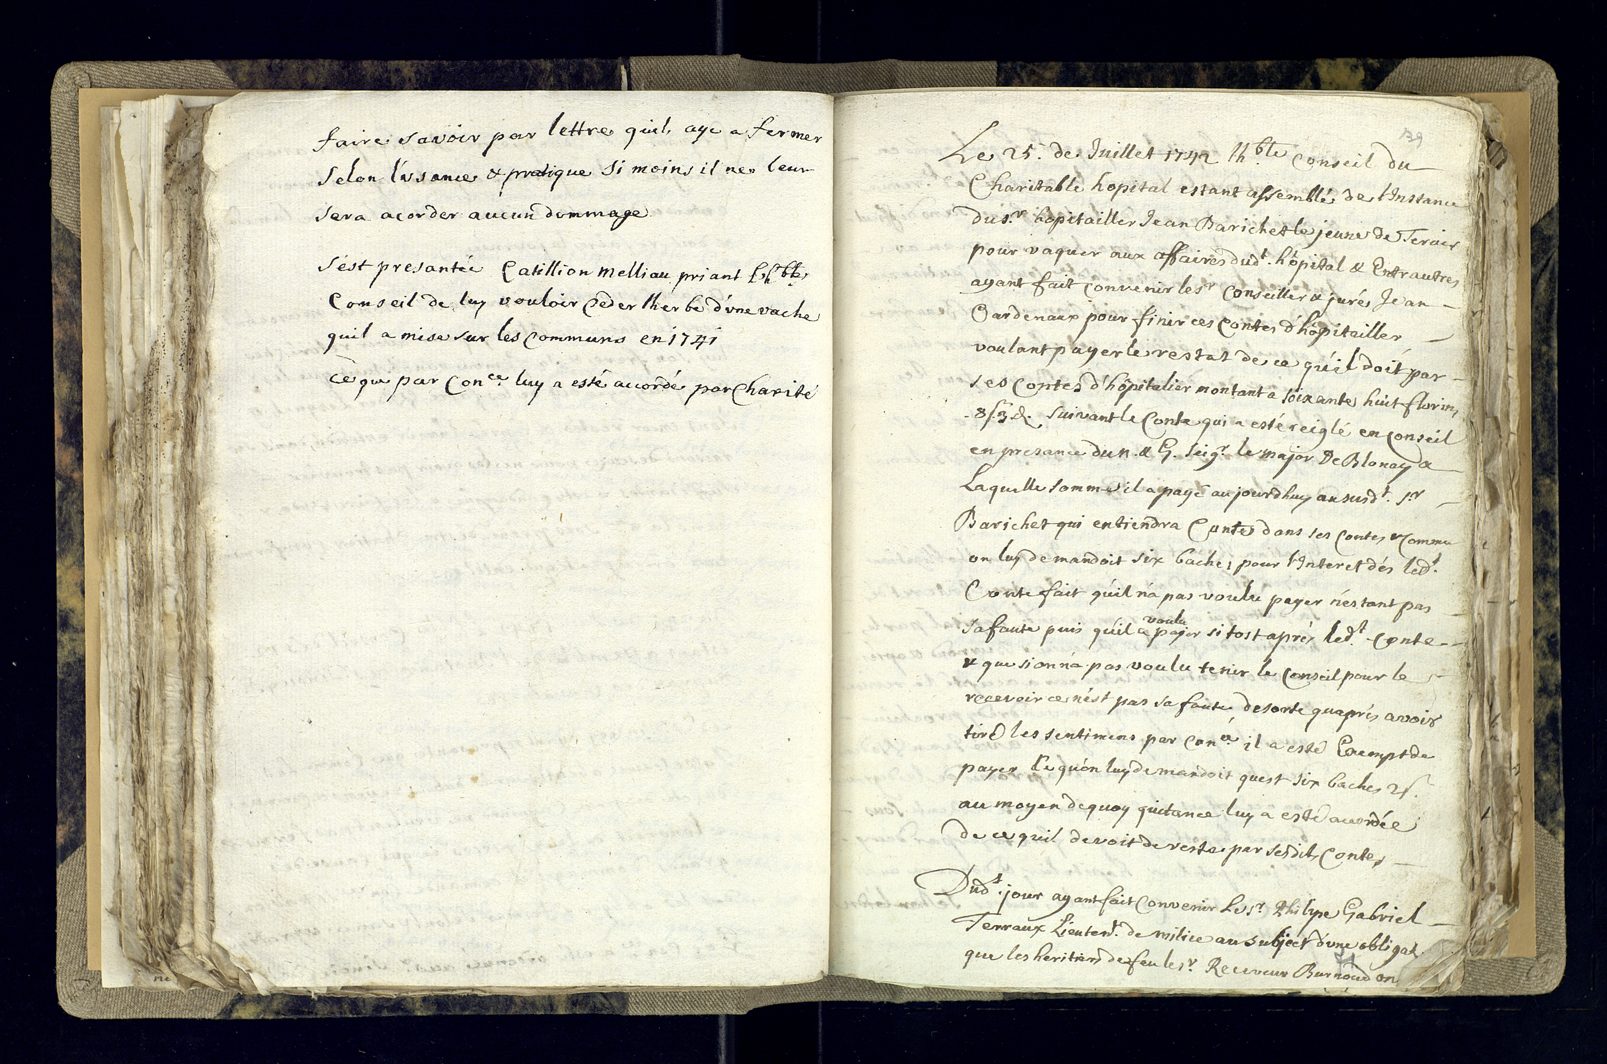 faire savoir par lettre quil aye a fermer
Selon l'usance & pratique Si moins il ne leur
sera acorder aucun dommage
S'est presantée Catillion Melliau priant l'h.ble
Conseil de luy vouloir Ceder lherbe d'une vache
quil a mise sur les Communs en 1741
Ce que par Con.ce luy a esté accordé par Charité
139
Le 25.e de Juillet 1742 lh.ble Conseil du
Charitable hopital estant assemblé de l'Instance
du S.r hopitailler Jean Barichet le jeune de
pour vaquer aux affaires dud.t hôpital & Entrautres
ayant fait convenir le S.r Conseiller & juré Jean
Gardenaux pour finir ces Contes d'hôpitailler
voulant payer le restat de ce qu'il doit par
ses Contes d'hôpitalier montant a soixante huit florins
8 s 3 d. Suivant le Conte qui a esté reiglé en Conseil
en presance du N. & G. Seig.r le major De Blonay &
Laquelle somme il a payé aujourdhuy au susd.t S.r
Barichet qui en tiendra Conte dans ses Contes & Comme
on luy demandoit six baches pour l'Interet dés led.t
Conte fait qu'il n'a pas voulu payer n'estant pas
sa faute puis qu'il a voulu payer si tost aprés led.t Conte
& que si on n'a pas voulu tenir le Conseil pour le
recevoir ce n'est pas sa faute, desorte quaprés avoir
tiré les sentimens par Con.ce il a esté Exempt de
payer Ce qu'on luy demandoit quest six baches
au moyen dequoy quitance luy a esté accordée
de ce quil devoit de reste par sesdits Contes
Dud.t jour ayant fait Convenir Le S.r Philipe Gabriel
Terraux Lieuten.t de milice au Subject d'une obligat.
que les heritiers de feu le S.r Receveur Burnoud on